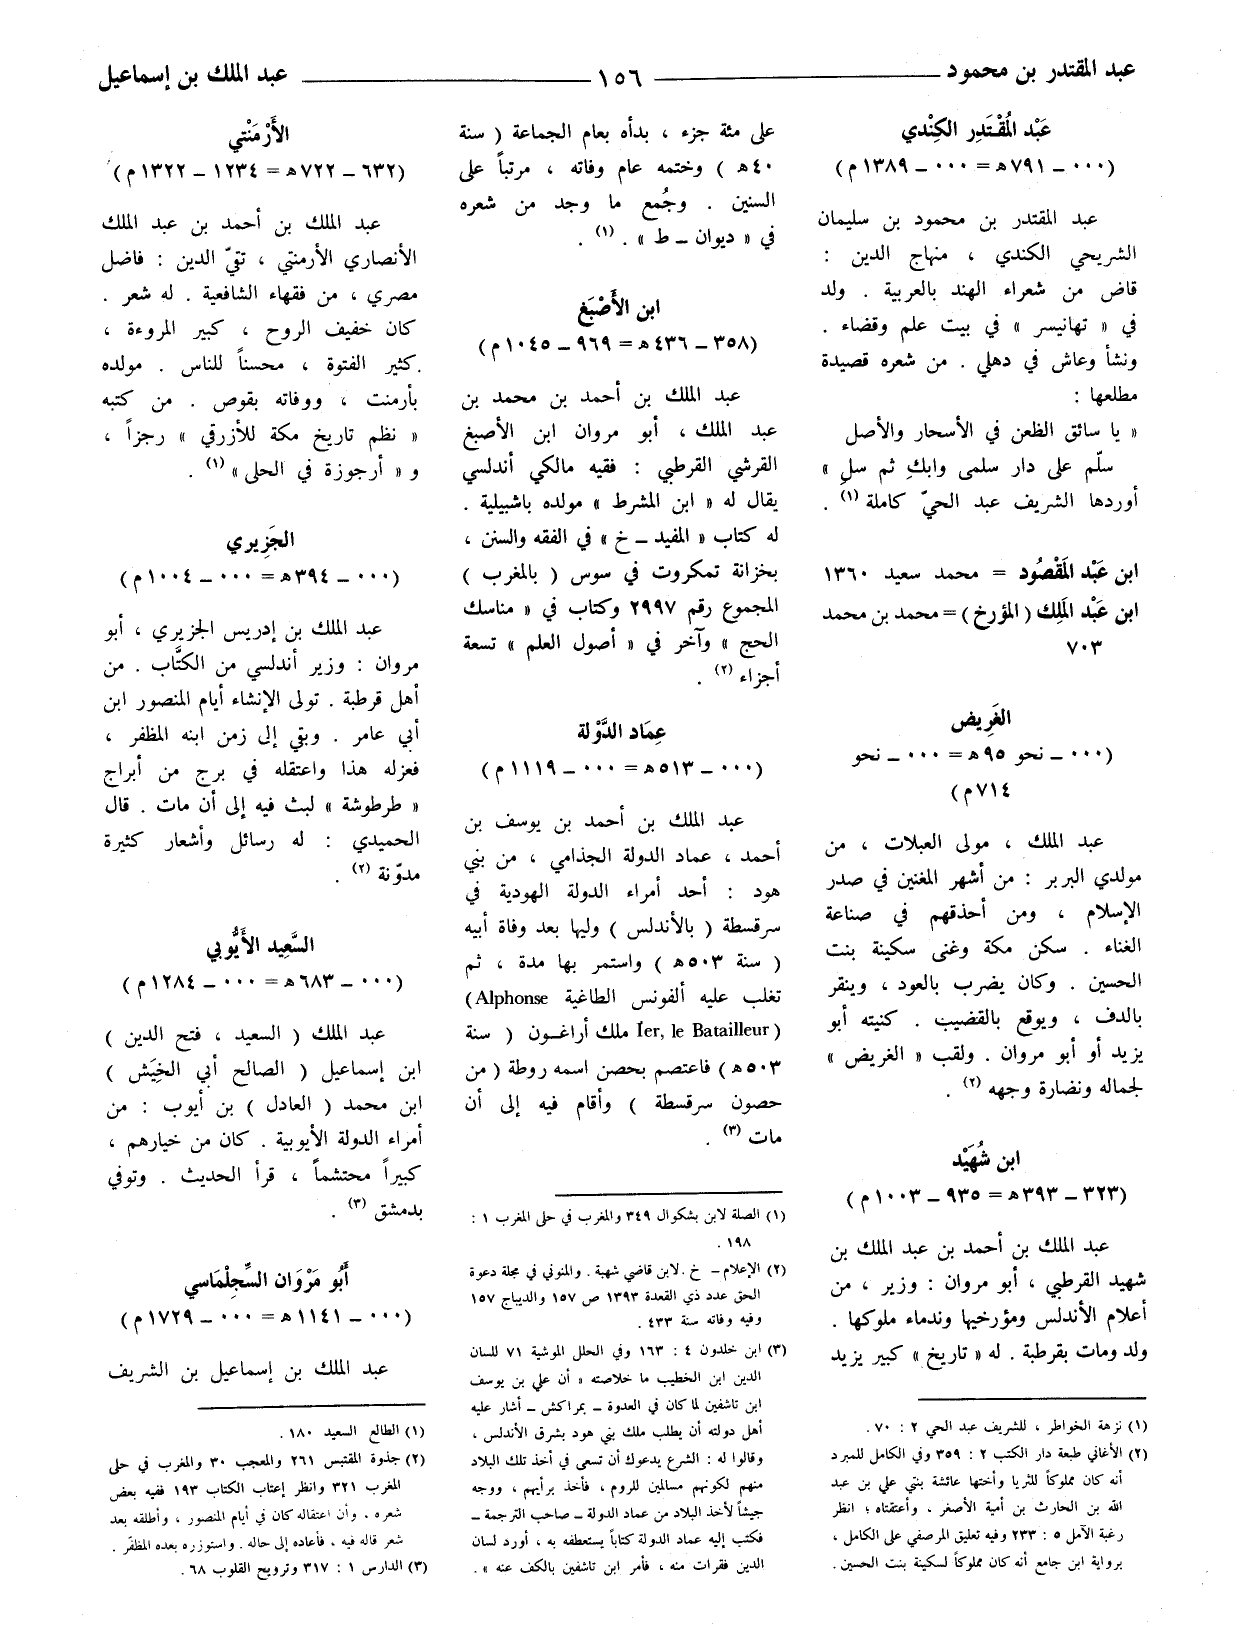 عبد المقتدر بن محمود ١٥٦ عبد الملك بن إسماعيل
عَبْد المُقْتَدِر الكِنْدي
(٠٠٠ ــ ٧٩١ ه‍ = ٠٠٠ ــ ١٣٨٩ م)
عبد المقتدر بن محمود بن سليمان
الشريحي الكندي ، منهاج الدين :
قاض من شعراء الهند بالعربية . ولد
في « تهانيسر » في بيت علم وقضاء .
ونشأ وعاش في دهلي . من شعره قصيدة
مطلعها :
« يا سائق الظعن في الأسحار والأصل
سلّم على دار سلمى وابكِ ثم سلِ »
أوردها الشريف عبد الحيّ كاملة (١) .
ابن عَبْد المَقْصُود = محمد سعيد ١٣٦٠
ابن عَبْد المَلِك ( المؤرخ ) = محمد بن محمد
٧٠٣
الغَرِيض
(٠٠٠ ــ نحو ٩٥ ه‍ = ٠٠٠ ــ نحو
٧١٤ م)
عبد الملك ، مولى العبلات ، من
مولدي البربر : من أشهر المغنين في صدر
الإسلام ، ومن أحذقهم في صناعة
الغناء . سكن مكة وغنى سكينة بنت
الحسين . وكان يضرب بالعود ، وينقر
بالدف ، ويوقع بالقضيب . كنيته أبو
يزيد أو أبو مروان . ولقب « الغريض »
لجماله ونضارة وجهه (٢) .
ابن شُهَيْد
(٣٢٣ ــ ٣٩٣ ه‍ = ٩٣٥ ــ ١٠٠٣ م)
عبد الملك بن أحمد بن عبد الملك بن
شهيد القرطبي ، أبو مروان : وزير ، من
أعلام الأندلس ومؤرخيها وندماء ملوكها .
ولد ومات بقرطبة . له « تاريخ » كبير يزيد
(١) نزهة الخواطر ، للشريف عبد الحي ٢ : ٧٠ .
(٢) الأغاني طبعة دار الكتب ٢ : ٣٥٩ وفي الكامل للمبرد
أنه كان مملوكاً للثريا وأختها عائشة بنتي علي بن عبد
الله بن الحارث بن أمية الأصغر ، وأعتقتاه ؛ انظر
رغبة الآمل ٥ : ٢٣٣ وفيه تعليق المرصفي على الكامل ،
برواية ابن جامع أنه كان مملوكاً لسكينة بنت الحسين .
على مئة جزء ، بدأه بعام الجماعة ( سنة
٤٠ ه‍ ) وختمه عام وفاته ، مرتباً على
السنين . وجُمع ما وجد من شعره
في « ديوان ــ ط » . (١) .
ابن الأَصْبَغ
(٣٥٨ ــ ٤٣٦ ه‍ = ٩٦٩ ــ ١٠٤٥ م)
عبد الملك بن أحمد بن محمد بن
عبد الملك ، أبو مروان ابن الأصبغ
القرشي القرطبي : فقيه مالكي أندلسي
يقال له « ابن المشرط » مولده باشبيلية .
له كتاب « المفيد ــ خ » في الفقه والسنن ،
بخزانة تمكروت في سوس ( بالمغرب )
المجموع رقم ٢٩٩٧ وكتاب في « مناسك
الحج » وآخر في « أصول العلم » تسعة
أجزاء (٢) .
عِمَاد الدَّوْلة
(٠٠٠ ــ ٥١٣ ه‍ = ٠٠٠ ــ ١١١٩ م)
عبد الملك بن أحمد بن يوسف بن
أحمد ، عماد الدولة الجذامي ، من بني
هود : أحد أمراء الدولة الهودية في
سرقسطة ( بالأندلس ) وليها بعد وفاة أبيه
( سنة ٥٠٣ ه‍ ) واستمر بها مدة ، ثم
تغلب عليه ألفونس الطاغية (Alphonse
Ier, le Batailleur) ملك أراغون ( سنة
٥٠٣ ه‍ ) فاعتصم بحصن اسمه روطة ( من
حصون سرقسطة ) وأقام فيه إلى أن
مات (٣) .
(١) الصلة لابن بشكوال ٣٤٩ والمغرب في حلى المغرب ١ :
١٩٨ .
(٢) الإعلام ــ خ . لابن قاضي شهبة . والمنوني في مجلة دعوة
الحق عدد ذي القعدة ١٣٩٣ ص ١٥٧ والديباج ١٥٧
وفيه وفاته سنة ٤٣٣ .
(٣) ابن خلدون ٤ : ١٦٣ وفي الحلل الموشية ٧١ للسان
الدين ابن الخطيب ما خلاصته « أن علي بن يوسف
ابن تاشفين لما كان في العدوة ــ بمراكش ــ أشار عليه
أهل دولته أن يطلب ملك بني هود بشرق الأندلس ،
وقالوا له : الشرع يدعوك أن تسعى في أخذ تلك البلاد
منهم لكونهم مسالمين للروم ، فأخذ برأيهم ، ووجه
جيشاً لأخذ البلاد من عماد الدولة ــ صاحب الترجمة ــ
فكتب إليه عماد الدولة كتاباً يستعطفه به ، أورد لسان
الدين فقرات منه ، فأمر ابن تاشفين بالكف عنه » .
الأَرْمَنْتي
(٦٣٢ ــ ٧٢٢ ه‍ = ١٢٣٤ ــ ١٣٢٢ م)
عبد الملك بن أحمد بن عبد الملك
الأنصاري الأرمنتي ، تقيّ الدين : فاضل
مصري ، من فقهاء الشافعية . له شعر .
كان خفيف الروح ، كبير المروءة ،
كثير الفتوة ، محسناً للناس . مولده
بأرمنت ، ووفاته بقوص . من كتبه
« نظم تاريخ مكة للأزرقي » رجزاً ،
و « أرجوزة في الحلى » (١) .
الجَزِيري
(٠٠٠ ــ ٣٩٤ ه‍ = ٠٠٠ ــ ١٠٠٤ م)
عبد الملك بن إدريس الجزيري ، أبو
مروان : وزير أندلسي من الكتَّاب . من
أهل قرطبة . تولى الإنشاء أيام المنصور ابن
أبي عامر . وبقي إلى زمن ابنه المظفر ،
فعزله هذا واعتقله في برج من أبراج
« طرطوشة » لبث فيه إلى أن مات . قال
الحميدي : له رسائل وأشعار كثيرة
مدوّنة (٢) .
السَّعِيد الأَيُّوبي
(٠٠٠ ــ ٦٨٣ ه‍ = ٠٠٠ ــ ١٢٨٤ م)
عبد الملك ( السعيد ، فتح الدين )
ابن إسماعيل ( الصالح أبي الخِيَش )
ابن محمد ( العادل ) بن أيوب : من
أمراء الدولة الأيوبية . كان من خيارهم ،
كبيراً محتشماً ، قرأ الحديث . وتوفي
بدمشق (٣) .
أَبُو مَرْوَان السِّجِلْمَاسي
(٠٠٠ ــ ١١٤١ ه‍ = ٠٠٠ ــ ١٧٢٩ م)
عبد الملك بن إسماعيل بن الشريف
(١) الطالع السعيد ١٨٠ .
(٢) جذوة المقتبس ٢٦١ والمعجب ٣٠ والمغرب في حلى
المغرب ٣٢١ وانظر إعتاب الكتاب ١٩٣ ففيه بعض
شعره ، وأن اعتقاله كان في أيام المنصور ، وأطلقه بعد
شعر قاله فيه ، فأعاده إلى حاله . واستوزره بعده المظفَر .
(٣) الدارس ١ : ٣١٧ وترويح القلوب ٦٨ .